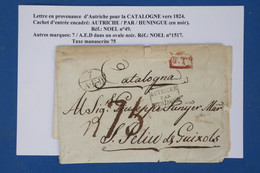 Lettre en provenance d'Autriche pour la CATALOGNE vers 1824.
Cachet d'entrée encadré: AUTRICHE / PAR / HUNINGUE (en noir).
Réf.: NOEL n°49.
Autres marques: 7 / A.E.D dans un ovale noir. Réf.: NOEL n°1517.
Taxe manuscrite 75
Catalogna
AUTRICHE
PAR
Al Sigr Giuseppe
S. Feliu de Guixols